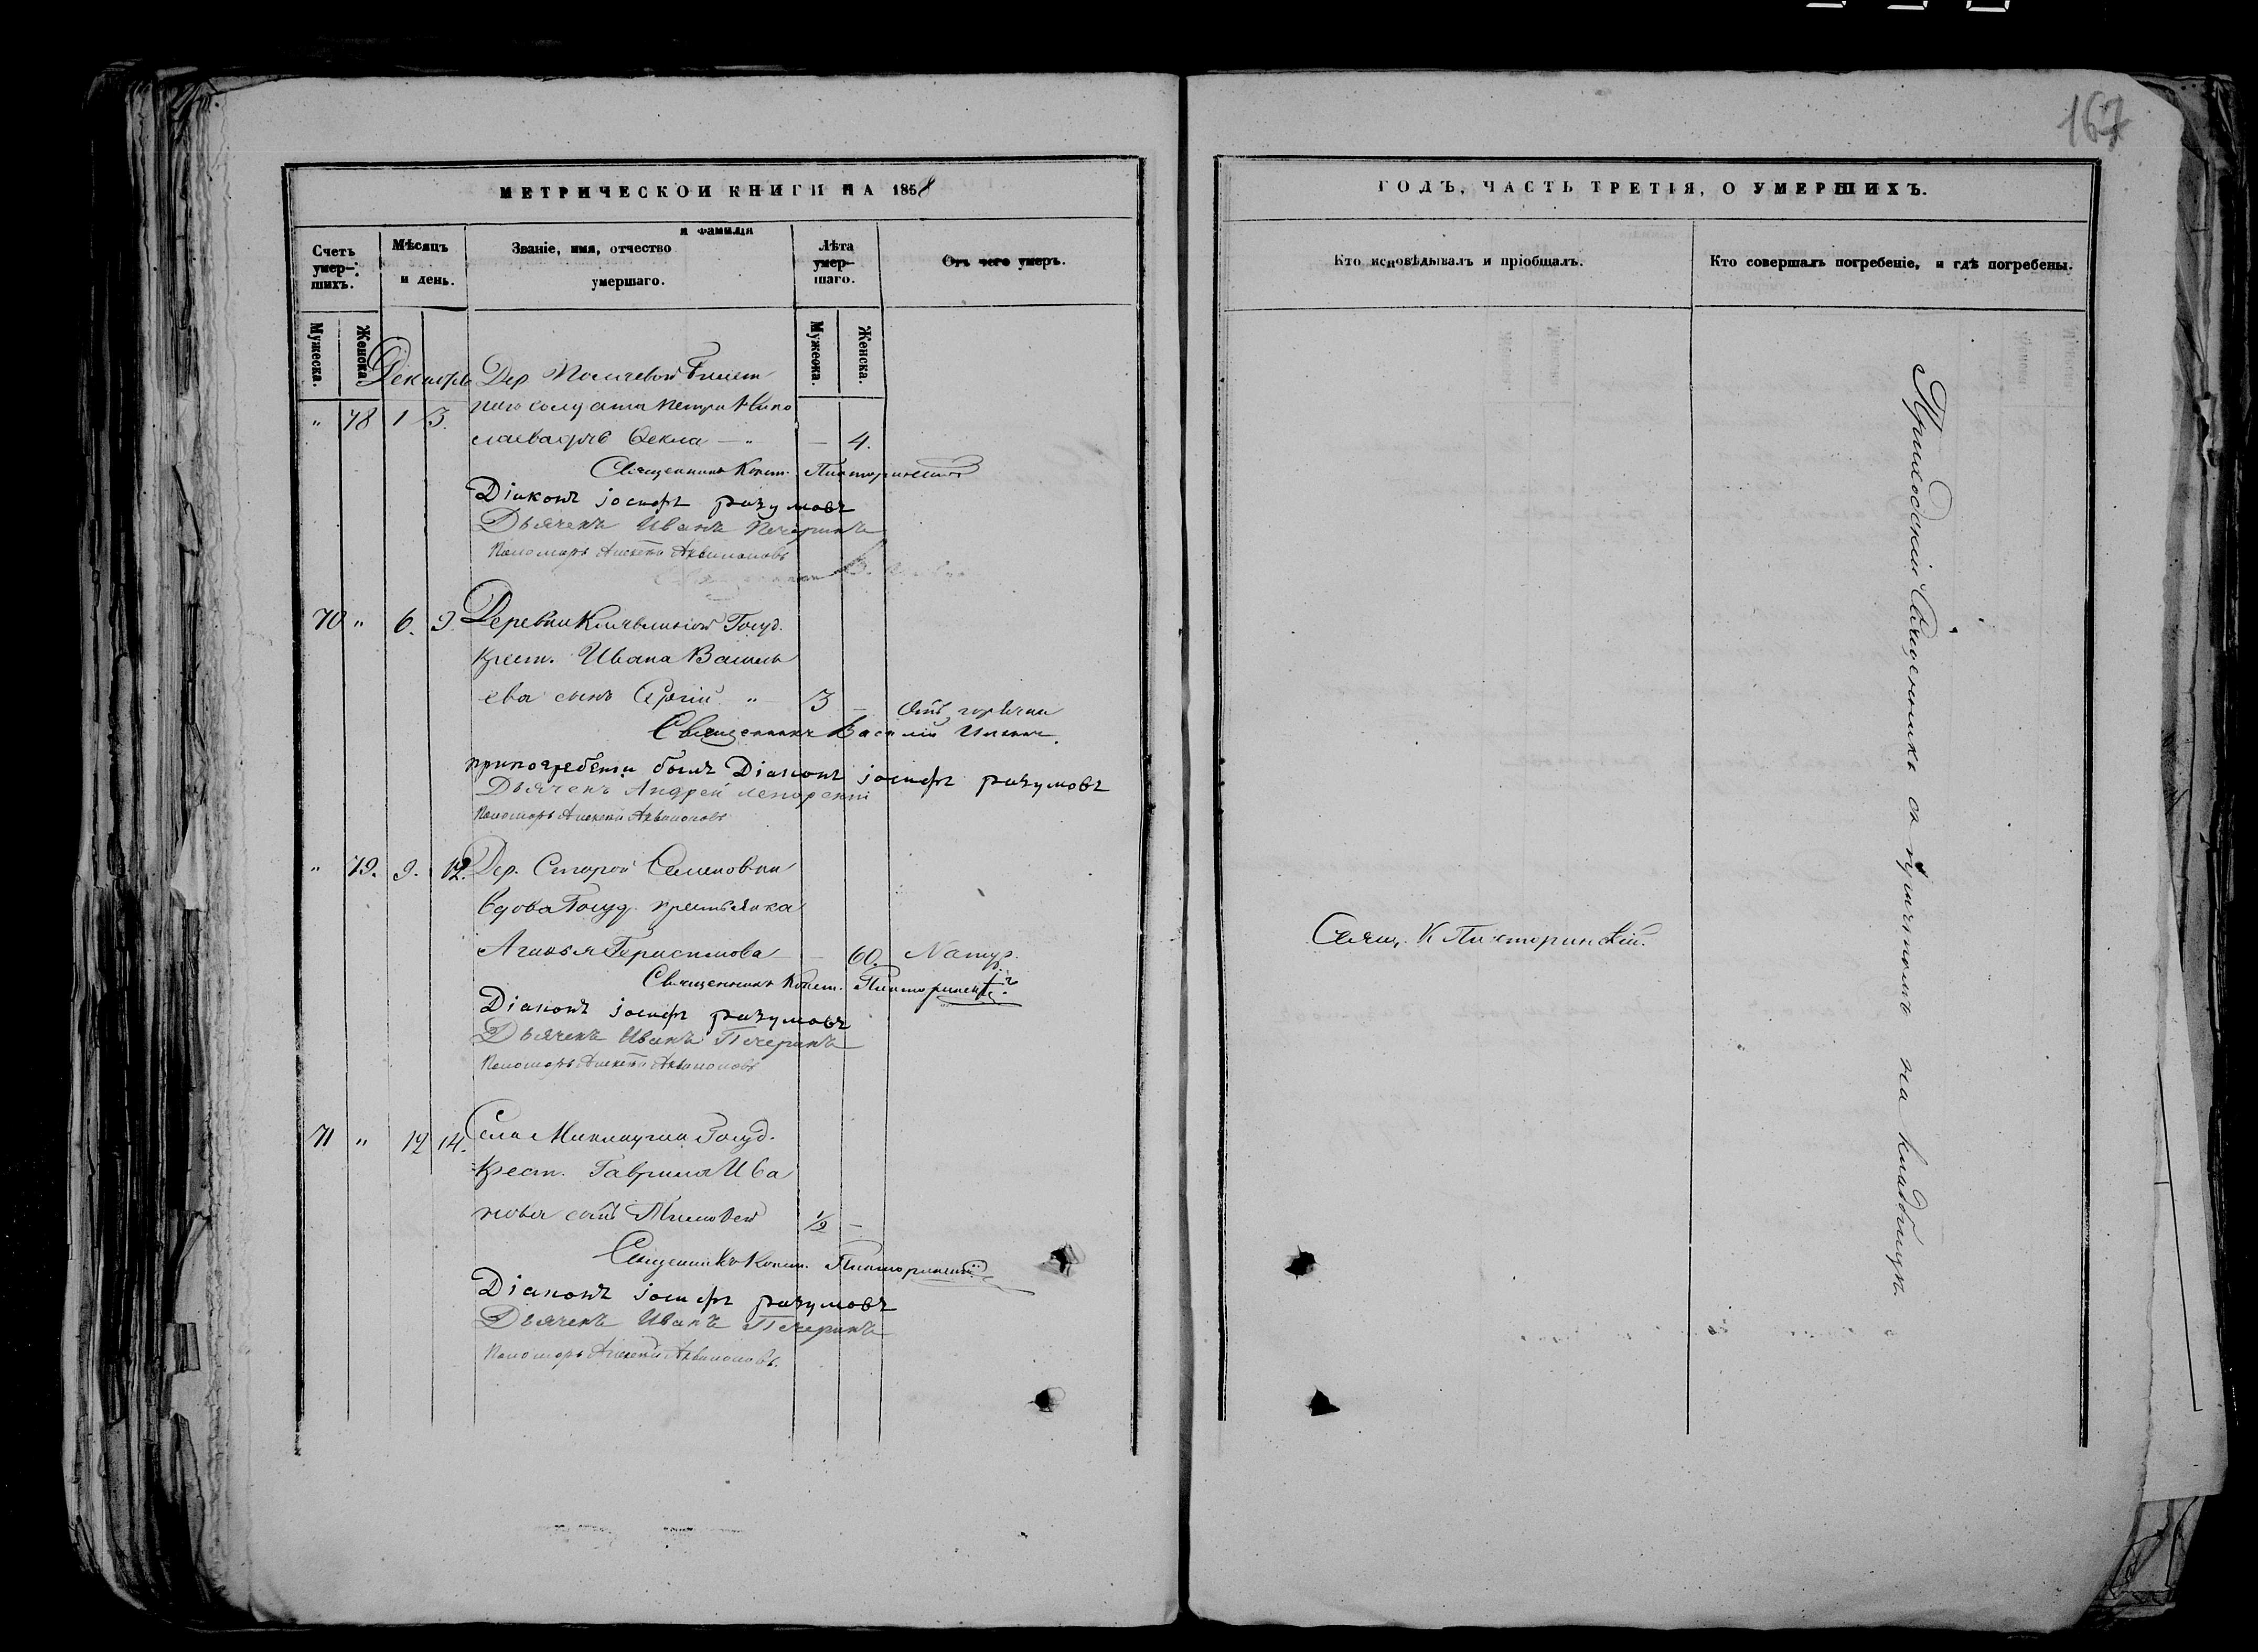 167
МЕТРИЧЕСКОЙ КНИГИ НА 1858
Счетъ умер-шихъ.
Мѣсяцъ и день.
Званіе, имя, отчество и фамилія умершаго.
Лѣта умер-шаго.
Отъ чего умеръ.
Мужеска.
Женска.
Мужеска.
Женска.
Декабрь
Дер.
" 78 1 3. солдата Петра
дочь Ѳекла — " — 4.
Священникъ Конст. Пиктори
Діаконъ іосифъ разумовъ
Дьячекъ Иванъ Печеринъ
Пономарь Алексѣй Аквилоновъ
70 " 6. 9. Деревни Госуд.
Крест. Ивана Василь
ева сынъ Сергій " 3 — Отъ горячки
Священникъ Василій
припогребении былъ Діаконъ іосифъ разумовъ
Дьячекъ Андрей
Пономарь Алексѣй Аквилоновъ
" 79. 9. 12. Дер. Старой Семеновки
вдова Госуд. крестьянка
Агафья Герасимова — 60. Натур.
Священникъ Конст. Пикторинскій
Діаконъ іосифъ разумовъ
Дьячекъ Иванъ Печеринъ
Пономарь Алексѣй Аквилоновъ
71 " 12 14. Села Госуд.
Крест. Гаврила Ива
нова сынъ Тимофей 1/2 —
Священникъ Конст. Пикторинскій
Діаконъ іосифъ разумовъ
Дьячекъ Иванъ Печеринъ
Пономарь Алексѣй Аквилоновъ.
ГОДЪ, ЧАСТЬ ТРЕТІЯ, О УМЕРШИХЪ.
Кто исповѣдывалъ и пріобщалъ.
Кто совершалъ погребеніе, и гдѣ погребены.
Свящ. К Пикторинскій.
Приходскій Священникъ съ причтомъ на кладбищѣ.